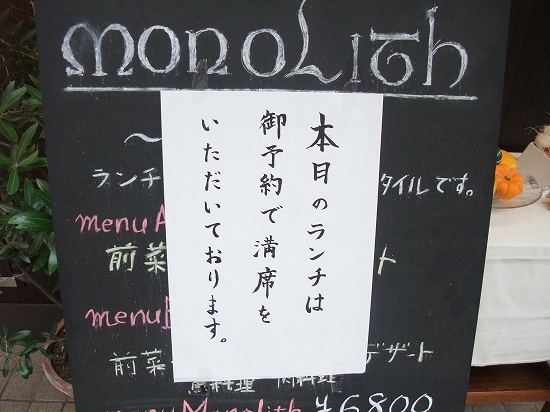 monoLith
本日のランチは
御予約で満席を
いただいております。
〜
ランチ タイルです。
menu A
前菜 ト
menu
前菜 デザート
魚料理 肉料理
menu Monolith ¥6800